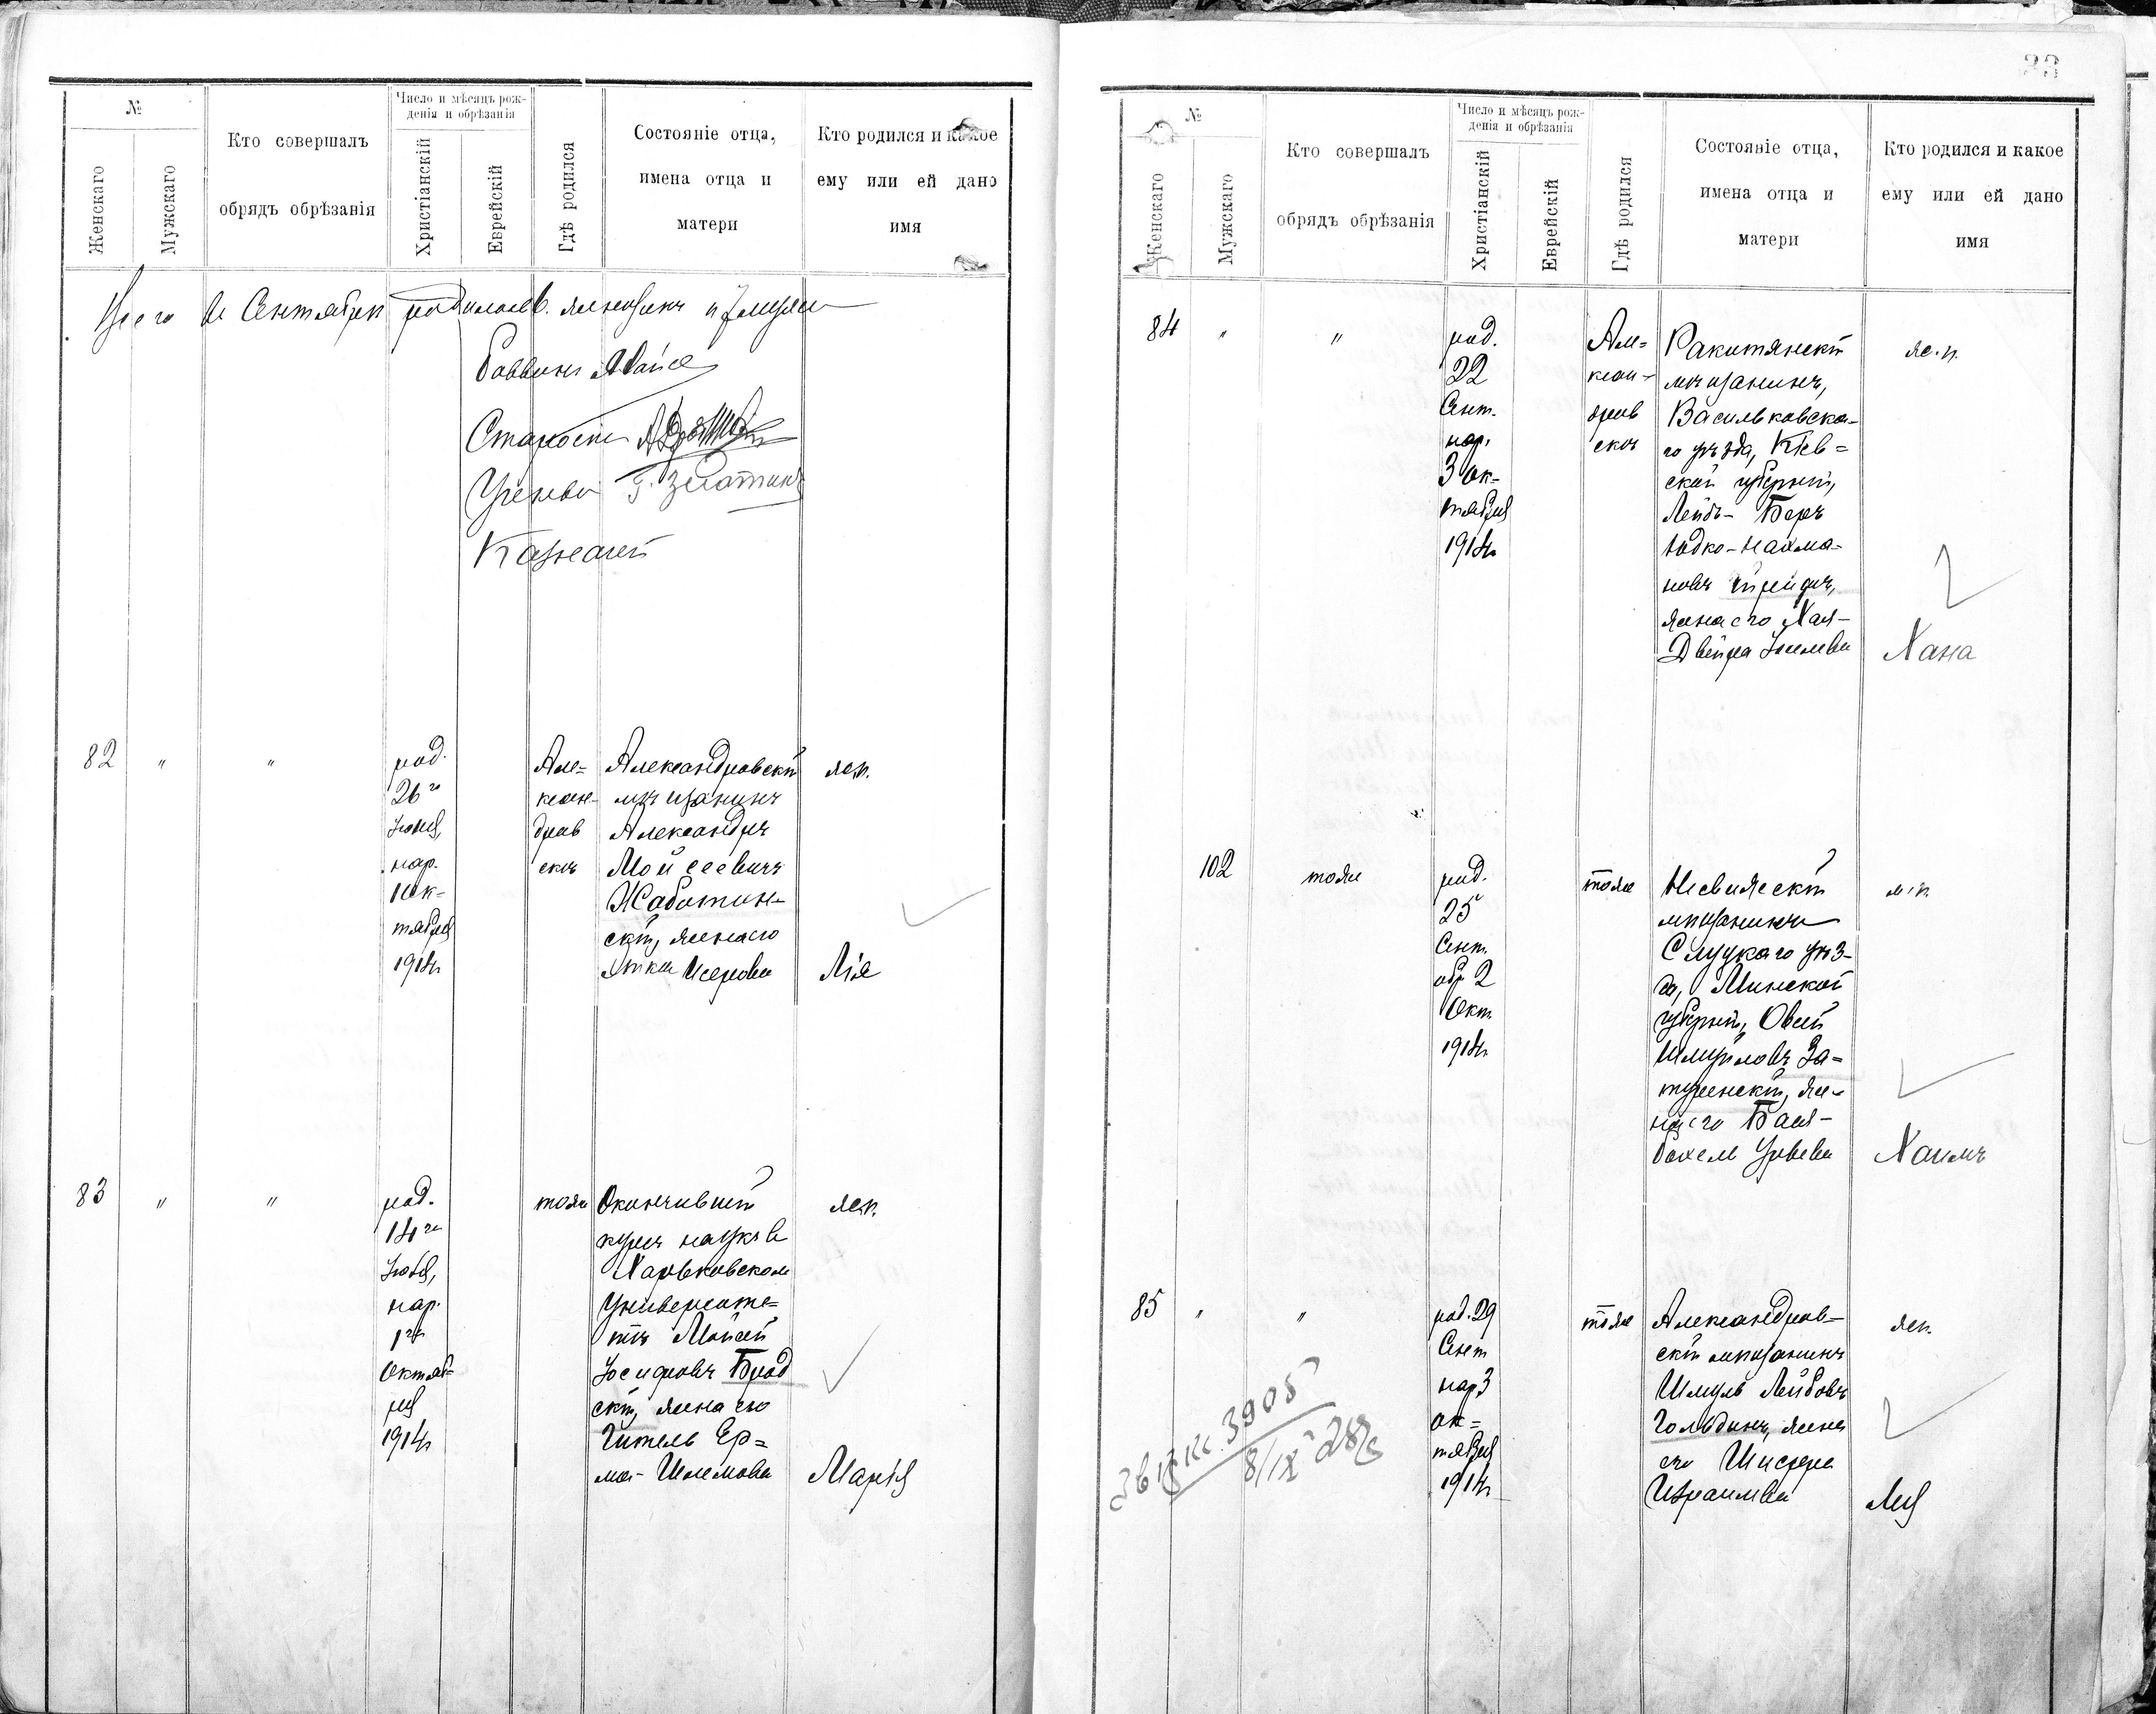 №
Женскаго
Мужскаго
Кто совершалъ
обрядъ обрѣзанія
Число и мѣсяцъ рож-
денія и обрѣзанія
Христіанскій
Еврейскій
Гдѣ родился
Состояніе отца,
имена отца и
матери
Кто родился и какое
ему или ей дано
имя
Сентябрѣ
Раввинъ
Староста
Ученый
Казначей
82 " "
род.
26го
Іюня,
нар.
1 Ок-
тября
1914г.
Але-
ксан-
дров
скъ
Александровскій
мѣщанинъ
Александръ
Мойсеевичъ
Жаботин-
скій, жена его
Исерова
ж.п.
Лія
83 " "
род.
14го
Іюля,
нар.
1го
Октяб-
ря
1914г.
тоже
Окончившій
курсъ наукъ в
Харьковскомъ
Университе-
тѣ Мойсей
Іосифовъ Брод
скій, жена его
Гитель Ер-
ма-Шлемова
ж.п.
Марія
33
№
Женскаго
Мужскаго
Кто совершалъ
обрядъ обрѣзанія
Число и мѣсяцъ рож-
денія и обрѣзанія
Христіанскій
Еврейскій
Гдѣ родился
Состояніе отца,
имена отца и
матери
Кто родился и какое
ему или ей дано
имя
84 " "
род.
22
Сент.
нар.
3 Ок-
тября
1914г.
Але-
ксан-
дров
скъ
Ракитянскій
мѣщанинъ,
Васильковска-
го уѣзда, Кіев-
ской губерніи,
Лейб-Беръ
Юдко-Нахма-
новъ
жена его Хая-
Двейра
ж.п.
Хана
102
тоже
род.
25
Сент.
обр. 2
Окт.
1914г.
тоже
Несвижскій
мѣщанинъ
Слуцкаго уѣз-
да, Минской
губерніи, Овсей
Шмуйловъ За-
туренскій, же-
на его Бася-
м.п.
Хаимъ
85 " "
род. 29
Сент
нар. 3
Ок-
тября
1914г.
тоже
Александров-
скій мѣщанинъ
Шмуль Лейбовъ
Гольдинъ, жена
его Шифра
Израилева
ж.п.
Лея
3905
8/IX 28